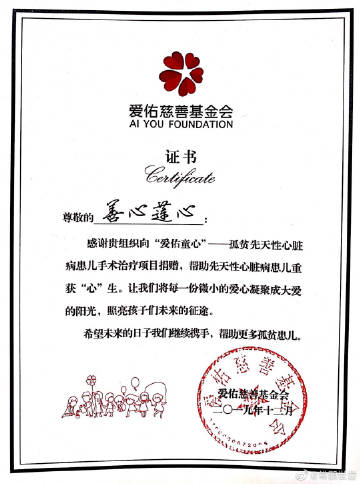 爱佑慈善基金会
AI YOU FOUNDATION
证书
Certificate
尊敬的 善心莲心 ：
感谢贵组织向“爱佑童心”——孤贫先天性心脏
病患儿手术治疗项目捐赠，帮助先天性心脏病患儿重
获“心”生。让我们将每一份微小的爱心凝聚成大爱
的阳光，照亮孩子们未来的征途。
希望未来的日子我们继续携手，帮助更多孤贫患儿。
爱佑慈善基金会
爱佑慈善基金会
二〇一九年十二月